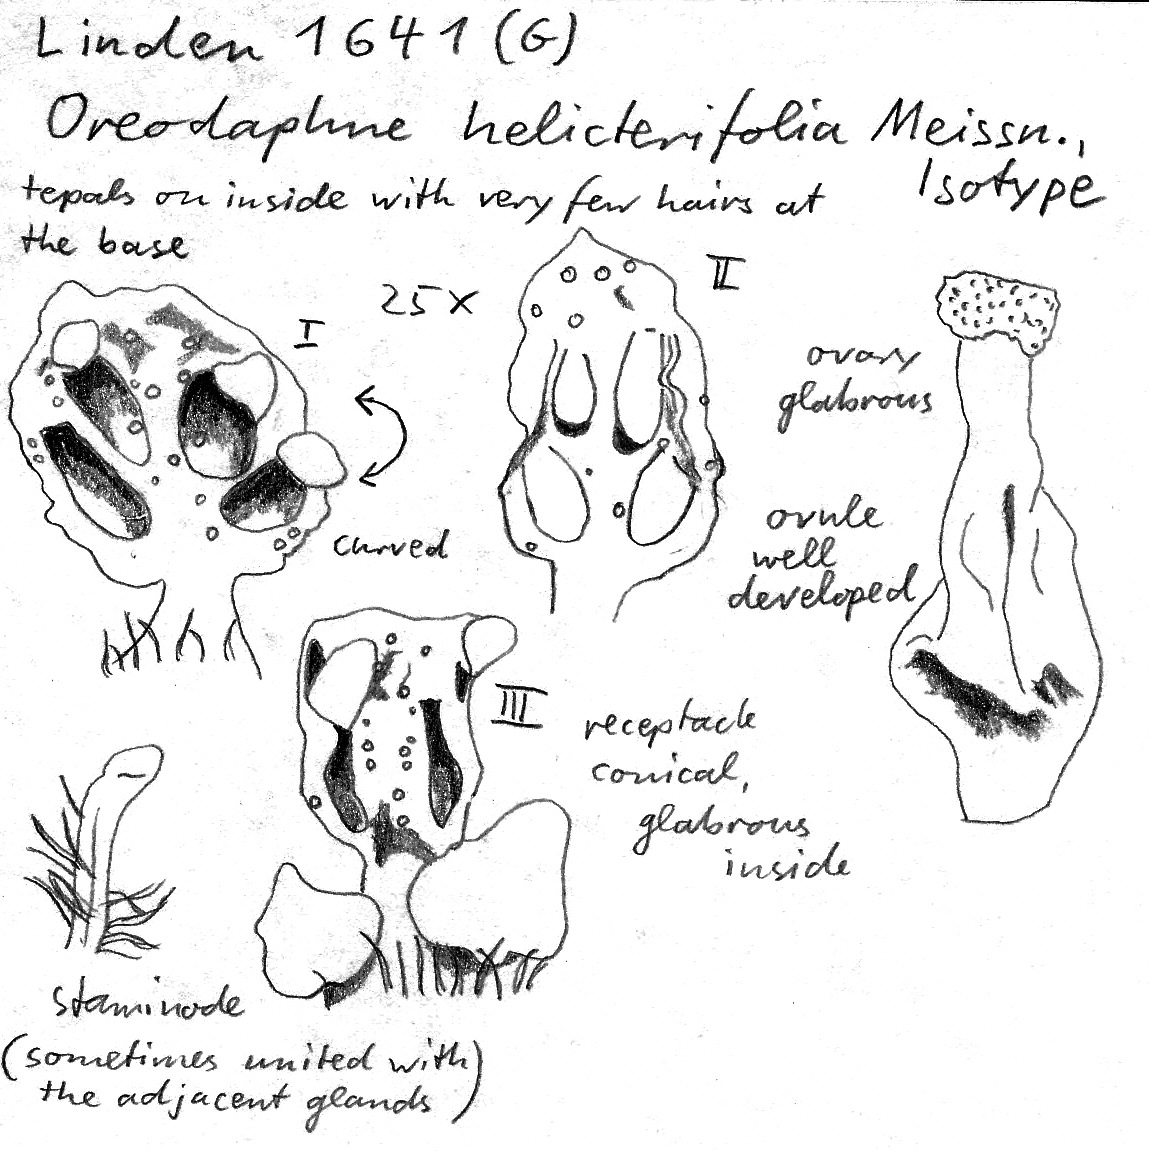 Linden 1641 (G)
Oreodaphne helicterifolia Meissn.,
Isotype
tepals on inside with very few hairs at
the base
25 x
I
II
curved
ovary
glabrous
ovule
well
developed
III
receptacle
conical,
glabrous
inside
staminode
(sometimes united with
the adjacent glands)